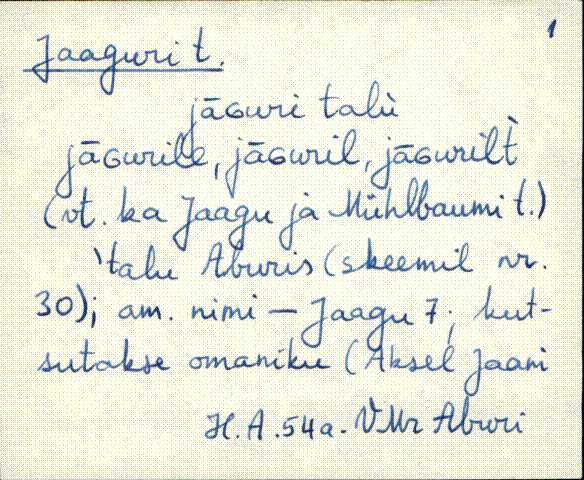 1
Jaaguri t.
jāɢuri talù
jāɢurile, jāɢuril, jāɢurilt̀
(vt. ka Jaagu ja Mühlbaumi t.)
'talu Aburis (skeemil nr.
30); am. nimi – Jaagu 7; kut-
sutakse omaniku (Aksel Jaani
H.A. 54a. VMr Aburi